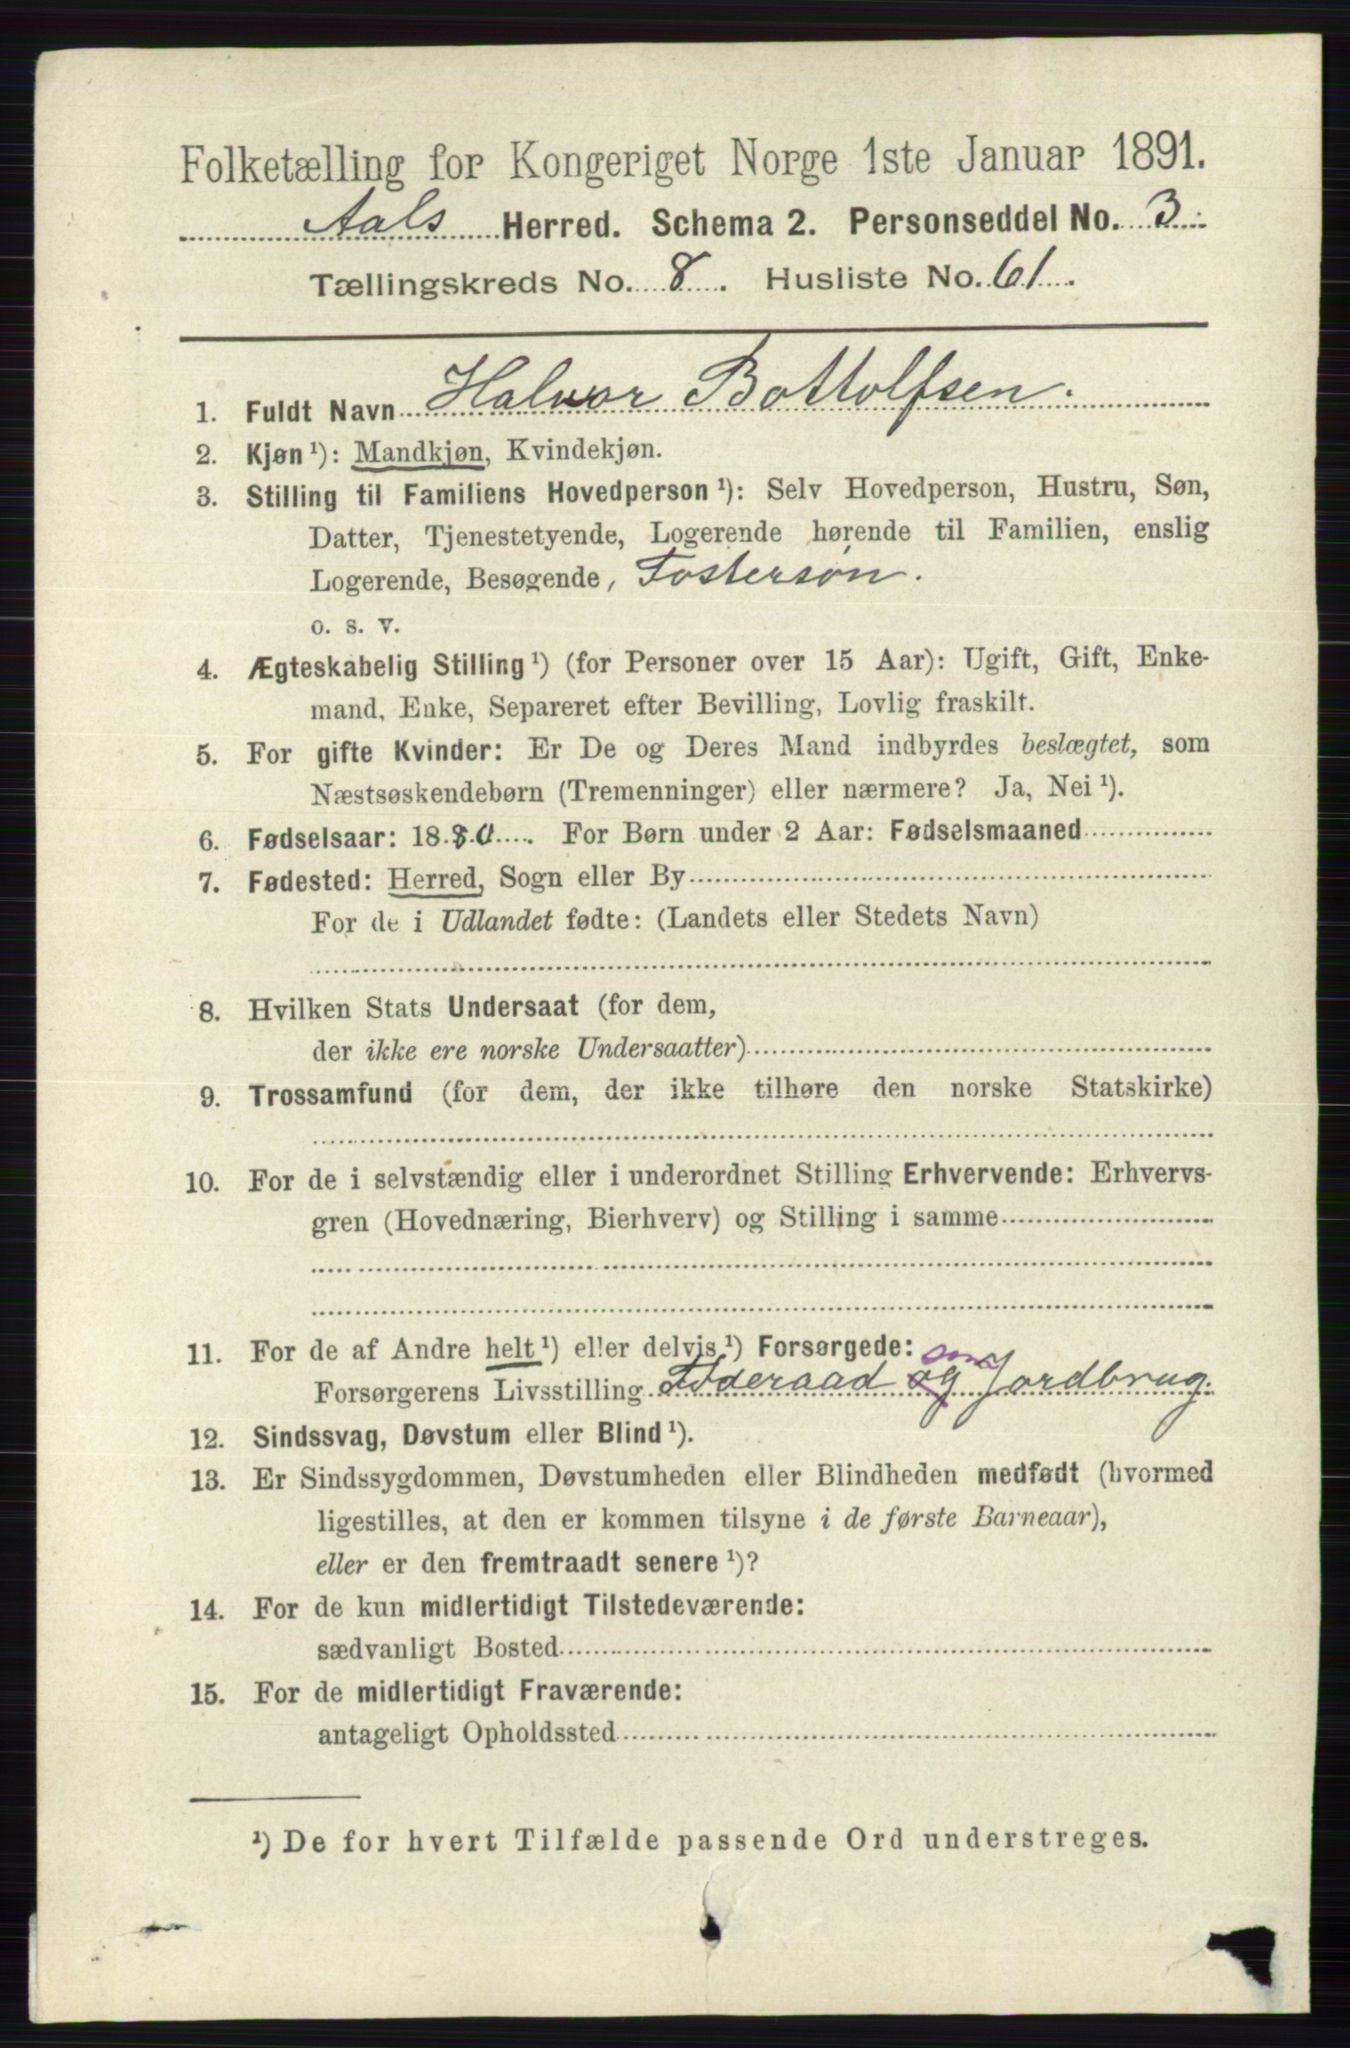 Folketælling for Kongeriget Norge 1ste Januar 1891.
Aals Herred. Schema 2. Personseddel No. 3.
Tællingskreds No. 8. Husliste No. 61.
1. Fuldt Navn Halvor Bottolfsen.
2. Kjøn ¹): Mandkjøn, Kvindekjøn.
3. Stilling til Familiens Hovedperson ¹): Selv Hovedperson, Hustru, Søn,
Datter, Tjenestetyende, Logerende hørende til Familien, enslig
Logerende, Besøgende, Fostersøn.
o. s. v.
4. Ægteskabelig Stilling ¹) (for Personer over 15 Aar): Ugift, Gift, Enke-
mand, Enke, Separeret efter Bevilling, Lovlig fraskilt.
5. For gifte Kvinder: Er De og Deres Mand indbyrdes beslægtet, som
Næstsøskendebørn (Tremenninger) eller nærmere? Ja, Nei ¹).
6. Fødselsaar: 1880. For Børn under 2 Aar: Fødselsmaaned
7. Fødested: Herred, Sogn eller By
For de i Udlandet fødte: (Landets eller Stedets Navn)
8. Hvilken Stats Undersaat (for dem,
der ikke ere norske Undersaatter)
9. Trossamfund (for dem, der ikke tilhøre den norske Statskirke)
10. For de i selvstændig eller i underordnet Stilling Erhvervende: Erhvervs-
gren (Hovednæring, Bierhverv) og Stilling i samme
11. For de af Andre helt ¹) eller delvis ¹) Forsørgede:
Forsørgerens Livsstilling Føderaad og Jordbrug.
12. Sindssvag, Døvstum eller Blind ¹).
13. Er Sindssygdommen, Døvstumheden eller Blindheden medfødt (hvormed
ligestilles, at den er kommen tilsyne i de første Barneaar),
eller er den fremtraadt senere ¹)?
14. For de kun midlertidigt Tilstedeværende:
sædvanligt Bosted
15. For de midlertidigt Fraværende:
antageligt Opholdssted
¹) De for hvert Tilfælde passende Ord understreges.